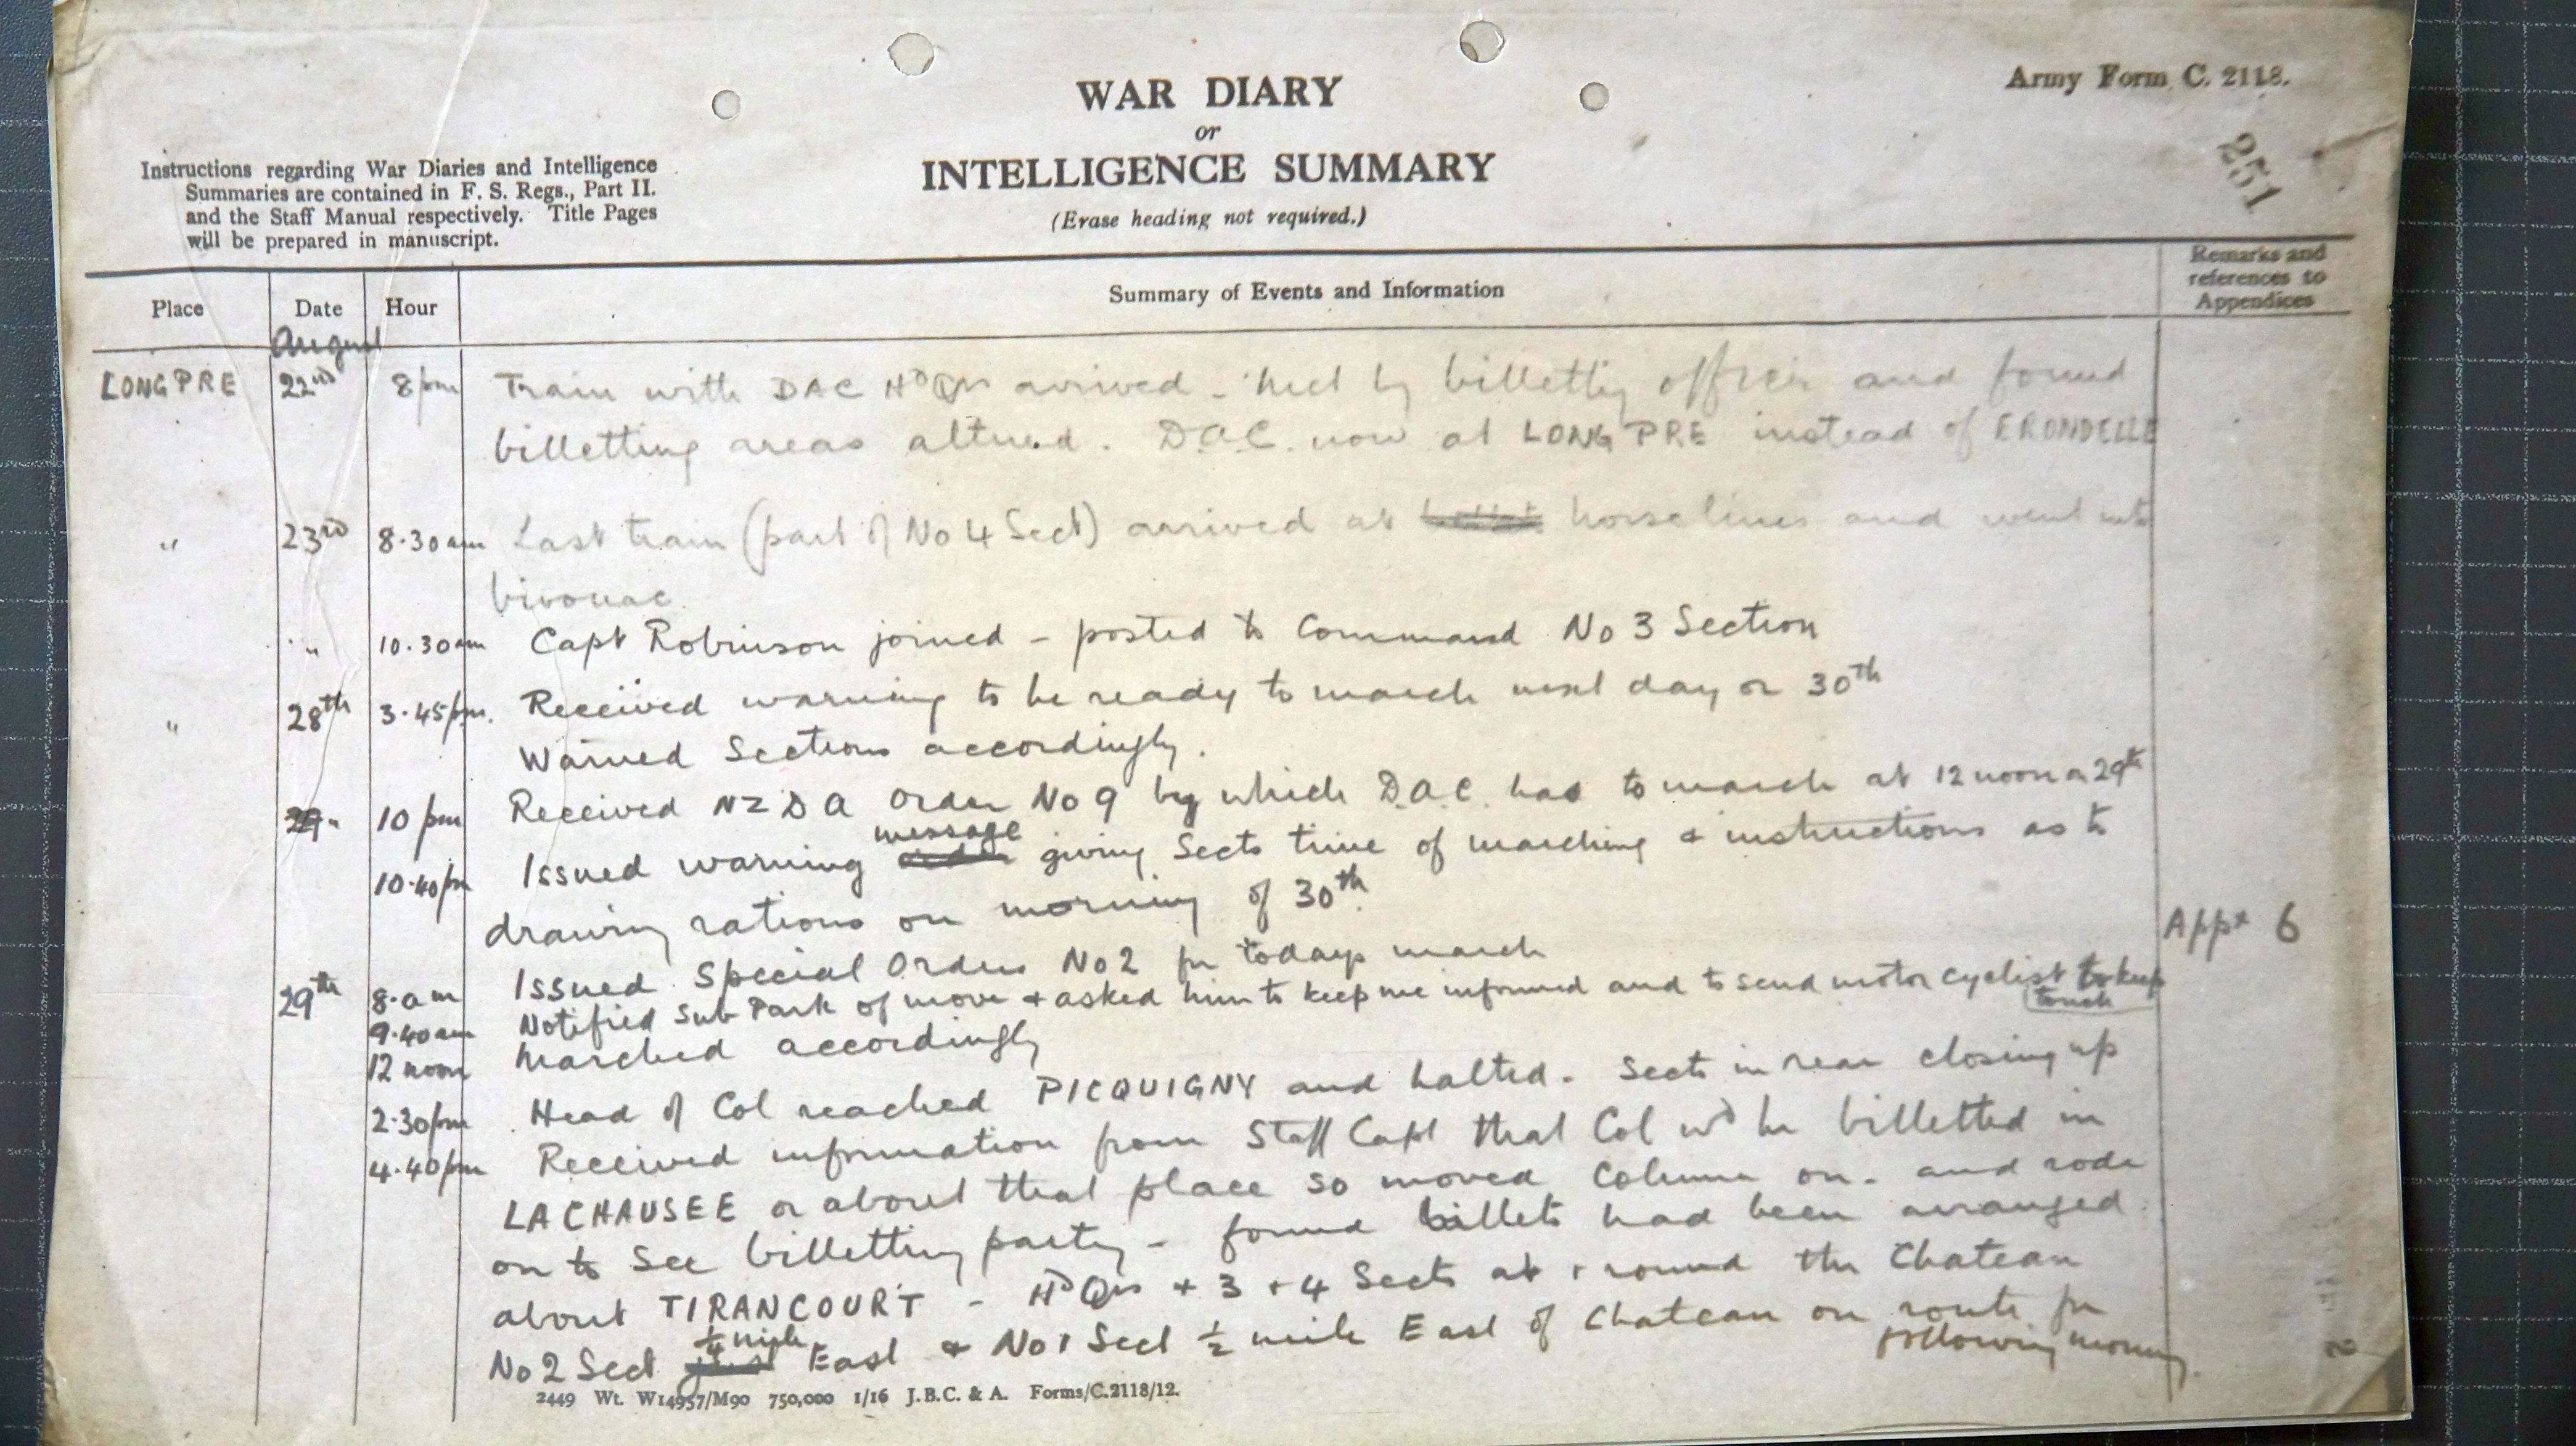 Army Form C. 2118.
WAR DIARY
or
INTELLIGENCE SUMMARY
(Erase heading not required.)
251
Instructions regarding War Diaries and Intelligence
Summaries are contained in F. S. Regs., Part II.
and the Staff Manual respectively. Title Pages
will be prepared in manuscript.
Place Date Hour Summary of Events and Information Remarks and references to Appendices
August
LONGPRE 22nd 8pm Train with DAC HdQrs arrived - Met by billetting officer and found
billetting areas altered. D.A.C. now at LONG PRE instead of ERONDELLE
" 23rd 8.30am Last train (part of No 4 Sect) arrived at horse lines and went into
bivouac
" 10.30am Capt Robinson joined - posted to Command No 3 Section
" 28th 3.45pm. Received warning to be ready to march next day or 30th
Warned Sections accordingly.
" 10 pm Received NZDA Order No 9 by which D.A.C. has to march at 12 noon on 29th
10.40pm Issued warning order message giving Sects time of marching & instructions as to
drawing rations on morning of 30th.
29th 8.am Issued Special Orders No 2 for todays march Appx 6
9.40am Notified Sub Park of move & asked him to keep me informed and to send motor cyclist to keep
touch
12 noon Marched accordingly
2.30pm Head of Col reached PICQUIGNY and halted. Sects in rear closing up
4.40pm Received information from Staff Capt that Col wd be billetted in
LA CHAUSEE or about that place so moved Column on. and rode
on to see billetting party - found billets had been arranged
about TIRANCOURT - HdQrs + 3 + 4 Sects at + round the Chateau
No 2 Sect just 1/4 mile East & No 1 Sect 1/2 mile East of Chateau on route for
following morning.
2449 Wt. W14957/M90 750,000 1/16 J.B.C. & A. Forms/C.2118/12.